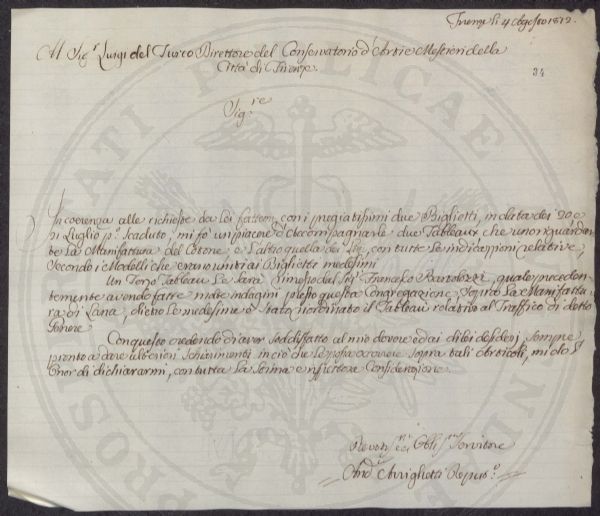 Firenze li 4 Agosto 1812.
Al Sig.r Luigi del Turco Direttore del Conservatorio d'Arti e Mestieri della
Città di Firenze.
34
Sig.re
In coerenza alle richieste da Lei fattemi, con i pregiatissimi due Biglietti, in data dei 20, e
Luglio p.o Scaduto, mi fo' un piacere d'accompagnarle due Tableaux che uno riguardan-
te La Manifattura del Cotone e L'altro quella dei, con tutte Le indicazioni relative,
Secondo i Modelli che erano uniti ai Biglietti medesimi
Un Terzo Tableau Le sarà rimesso dal Sig.r Francesco Bartolozzi, quale preceden-
temente avendo fatte molte indagini presso questa Congregazione, Sopra La Manifattu
ra di Lana, dietro Le medesime è stato incaricato il Tableau relativo al Traffico di detto
Genere
Con questo credendo di aver Soddisfatto al mio dovere ed ai di lei desiderj, Sempre
pronto a dare ulteriori Schiarimenti in ciò che Le possa occorrere Sopra tali Articoli, mi do L'
Onor di dichiararmi, con tutta La Stima e rispettosa Considerazione
Devot.mo Obbl.mo Servitore
And.a Arrighetti
PROSPERITATI PUBLICAE